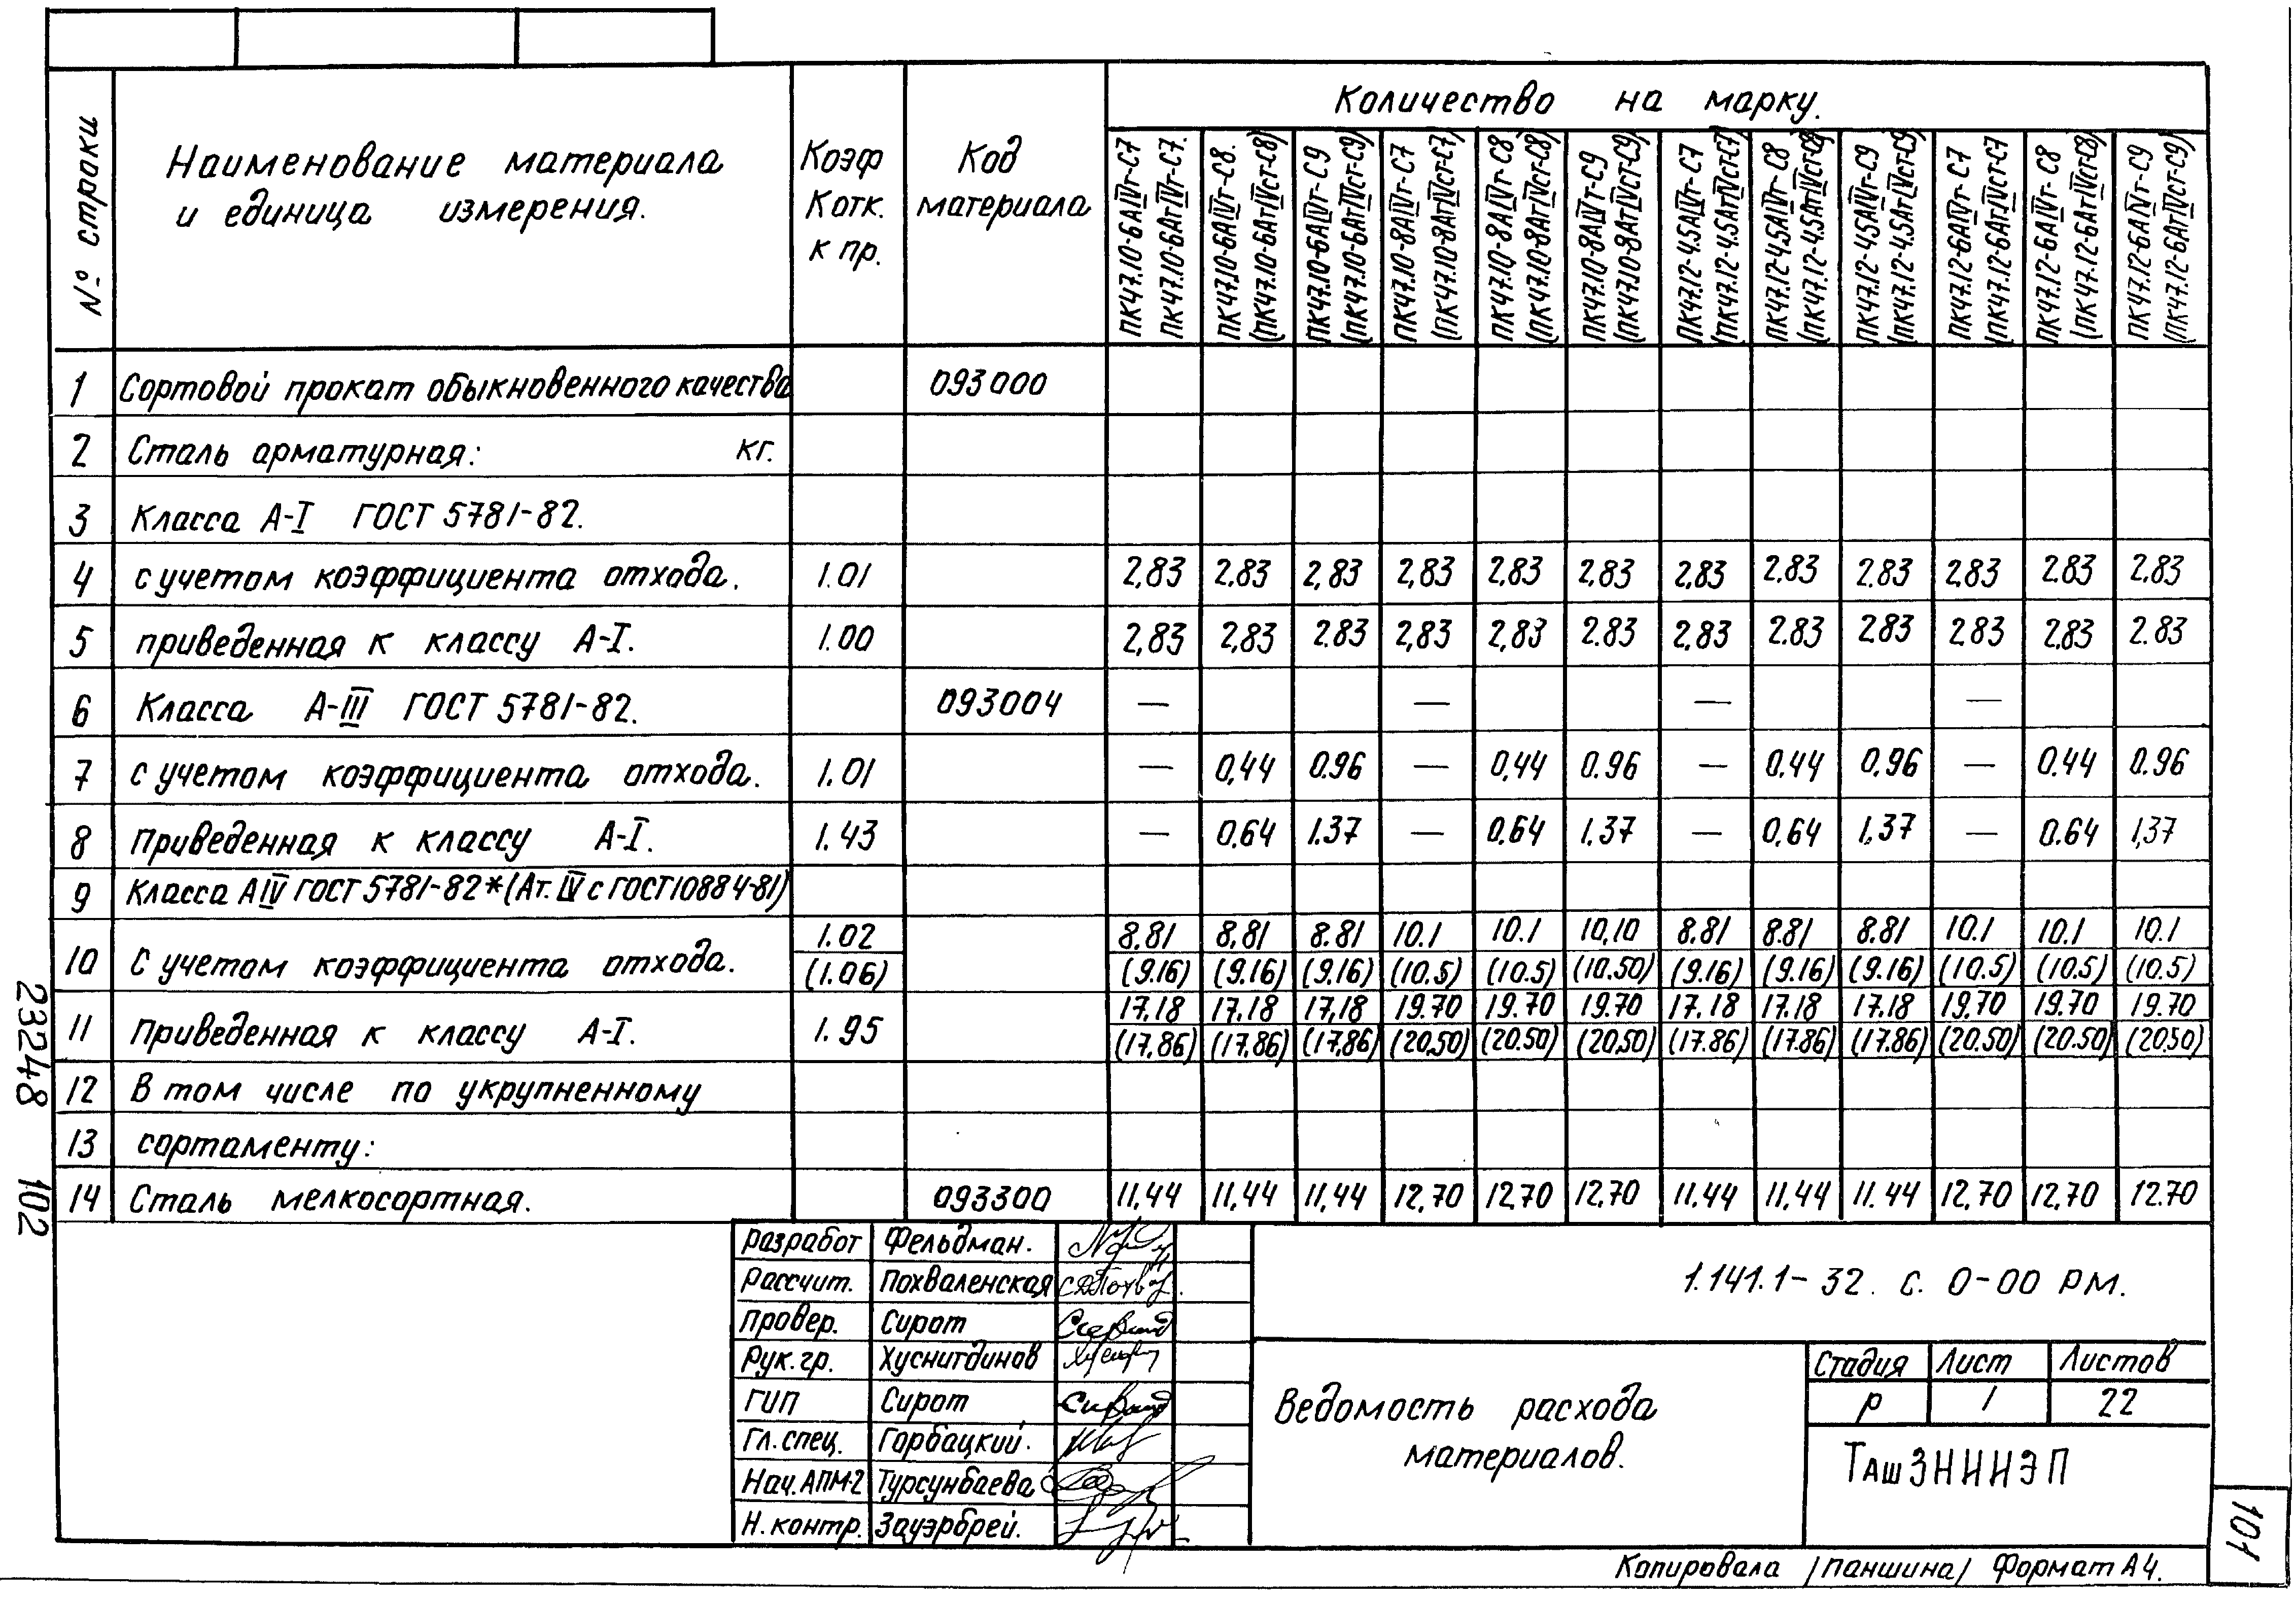 Количество на марку.
№ строки
Наименование материала
и единица измерения.
Коэф
Котк.
к пр.
Код
материала
ПК47.10-6АIVт-С7
ПК47.10-6АтIVт-С7.
ПК47.10-6АIVт-С8.
(ПК47.10-6АтIVст-С8)
ПК47.10-6АIVт-С9
(ПК47.10-6АтIVст-С9)
ПК47.10-8АIVт-С7
(ПК47.10-8АтIVст-С7)
ПК47.10-8АIVт-С8
(ПК47.10-8АтIVст-С8)
ПК47.10-8АIVт-С9
(ПК47.10-8АтIVст-С9)
ПК47.12-4.5АIVт-С7
(ПК47.12-4.5АтIVст-С7)
ПК47.12-4.5АIVт-С8
(ПК47.12-4.5АтIVст-С8)
ПК47.12-4.5АIVт-С9
(ПК47.12-4.5АтIVст-С9)
ПК47.12-6АIVт-С7
(ПК47.12-6АтIVст-С7
ПК47.12-6АIVт-С8
(ПК47.12-6АтIVст-С8)
ПК47.12-6АIVт-С9
(ПК47.12-6АтIVст-С9)
1 Сортовой прокат обыкновенного качества 093000
2 Сталь арматурная: кг.
3 Класса А-I ГОСТ 5781-82.
4 с учетом коэффициента отхода. 1.01 2,83 2.83 2,83 2,83 2,83 2.83 2,83 2.83 2.83 2.83 2.83 2.83
5 приведенная к классу А-I. 1.00 2,83 2,83 2.83 2,83 2,83 2.83 2,83 2.83 2.83 2.83 2,83 2.83
6 Класса А-III ГОСТ 5781-82. 093004 — — — —
7 с учетом коэффициента отхода. 1.01 — 0,44 0.96 — 0,44 0.96 — 0.44 0,96 — 0.44 0.96
8 приведенная к классу А-I. 1.43 — 0.64 1.37 — 0.64 1.37 — 0.64 1,37 — 0.64 1,37
9 Класса АIV ГОСТ 5781-82*(Ат.IVс ГОСТ10884-81)
10 С учетом коэффициента отхода. 1.02 8.81 8,81 8.81 10.1 10.1 10,10 8.81 8.81 8.81 10.1 10.1 10.1
(1.06) (9.16) (9.16) (9.16) (10.5) (10.5) (10.50) (9.16) (9.16) (9.16) (10.5) (10.5) (10.5)
11 Приведенная к классу А-I. 1.95 17,18 17,18 17,18 19.70 19.70 19.70 17.18 17.18 17.18 19,70 19.70 19.70
(17.86) (17.86) (17,86) (20,50) (20.50) (20,50) (17.86) (17.86) (17.86) (20.50) (20.50) (20.50)
12 В том числе по укрупненному
13 сортаменту:
14 Сталь мелкосортная. 093300 11,44 11,44 11,44 12,70 12,70 12,70 11.44 11,44 11.44 12,70 12,70 12.70
23248 102
разработ Фельдман.
Рассчит. Похваленская
Провер. Сирот
Рук.гр. Хуснитдинов
ГИП Сирот
Гл.спец. Горбацкий.
Нач.АПМ-2 Турсунбаева
Н.контр. Зауэрбрей.
1.141.1-32. с. 0-00 РМ.
Ведомость расхода
материалов.
Стадия Лист Листов
Р 1 22
ТашЗНИИЭП
101
Копировала /паншина/ Формат А4.